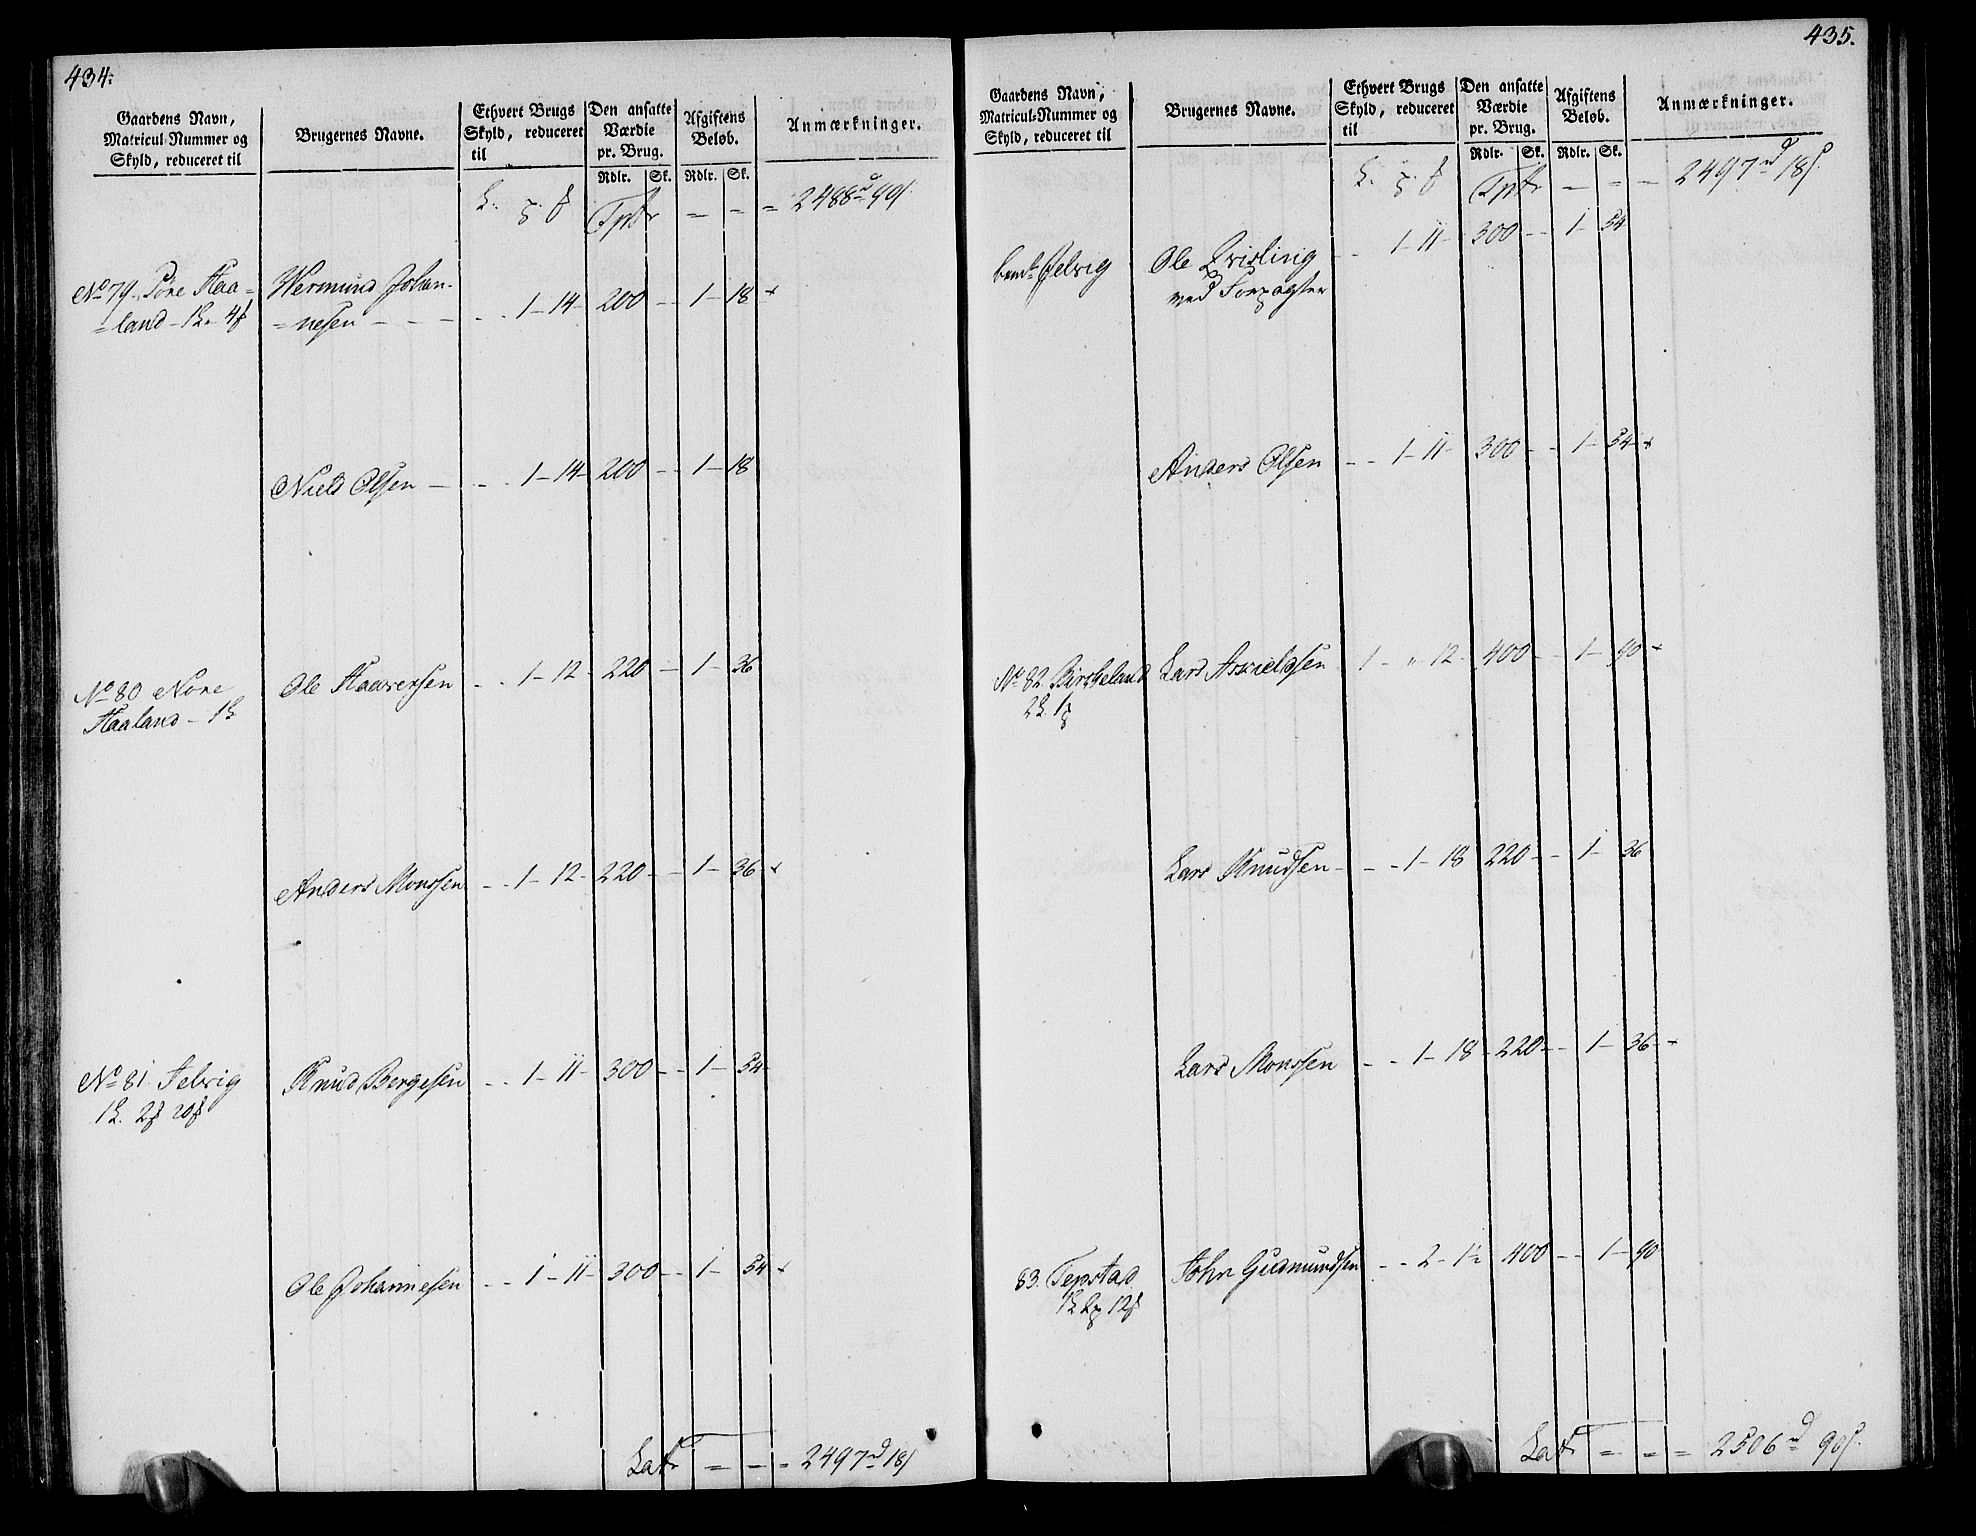 434.
Gaardens Navn,
Matricul-Nummer og
Skyld, reduceret til
Brugernes Navne.
Ethvert Brugs
Skyld, reduceret
til
Den ansatte
Værdie
pr. Brug.
Rdlr. Sk.
Afgiftens
Beløb.
Rdlr. Sk.
Anmærkninger.
Tpt = = = 2488
No 79 Søre Haa=
=land
Wermund Johan-
=nesen - - - - - 1 - 14 - 200 - - 1 - 18 +
Niels Olsen - - - 1 - 14 - 200 - - 1 - 18
No 80 Nore
Haaland
Ole Haaversen - - 1 - 12 - 220 - - 1 - 36
Anders Monssen - - 1 - 12 - 220 - - 1 - 36 +
No 81 Jelvig
Knud Bergesen - - 1 - 11 - 300 - - 1 - 54
Ole Johannesen - - 1 - 11 - 300 - - 1 - 54 +
Lat = = = 2497 18
435.
Gaardens Navn,
Matricul-Nummer og
Skyld, reduceret til
Brugernes Navne.
Ethvert Brugs
Skyld, reduceret
til
Den ansatte
Værdie
pr. Brug.
Rdlr. Sk.
Afgiftens
Beløb.
Rdlr. Sk.
Anmærkninger.
Tpt - = = 2497 18
Jelvig
Ole Qvisling - - 1 - 11 - 300 - - 1 - 54
ved Forpagter
Anders Olsen - - 1 - 11 - 300 - - 1 - 54 +
No 82 Birkeland
Lars Askieldsen 1 - " 12 - 400 - - 1 - 90 +
Lars Knudsen - - - 1 - 18 220 - - 1 - 36
Lars Monssen - - 1 - 18 - 220 - - 1 - 36 +
83. Tepstad
John Gudmundsen - - 2 - 1½ 400 - - 1 - 90
Lat = = = 2506 90